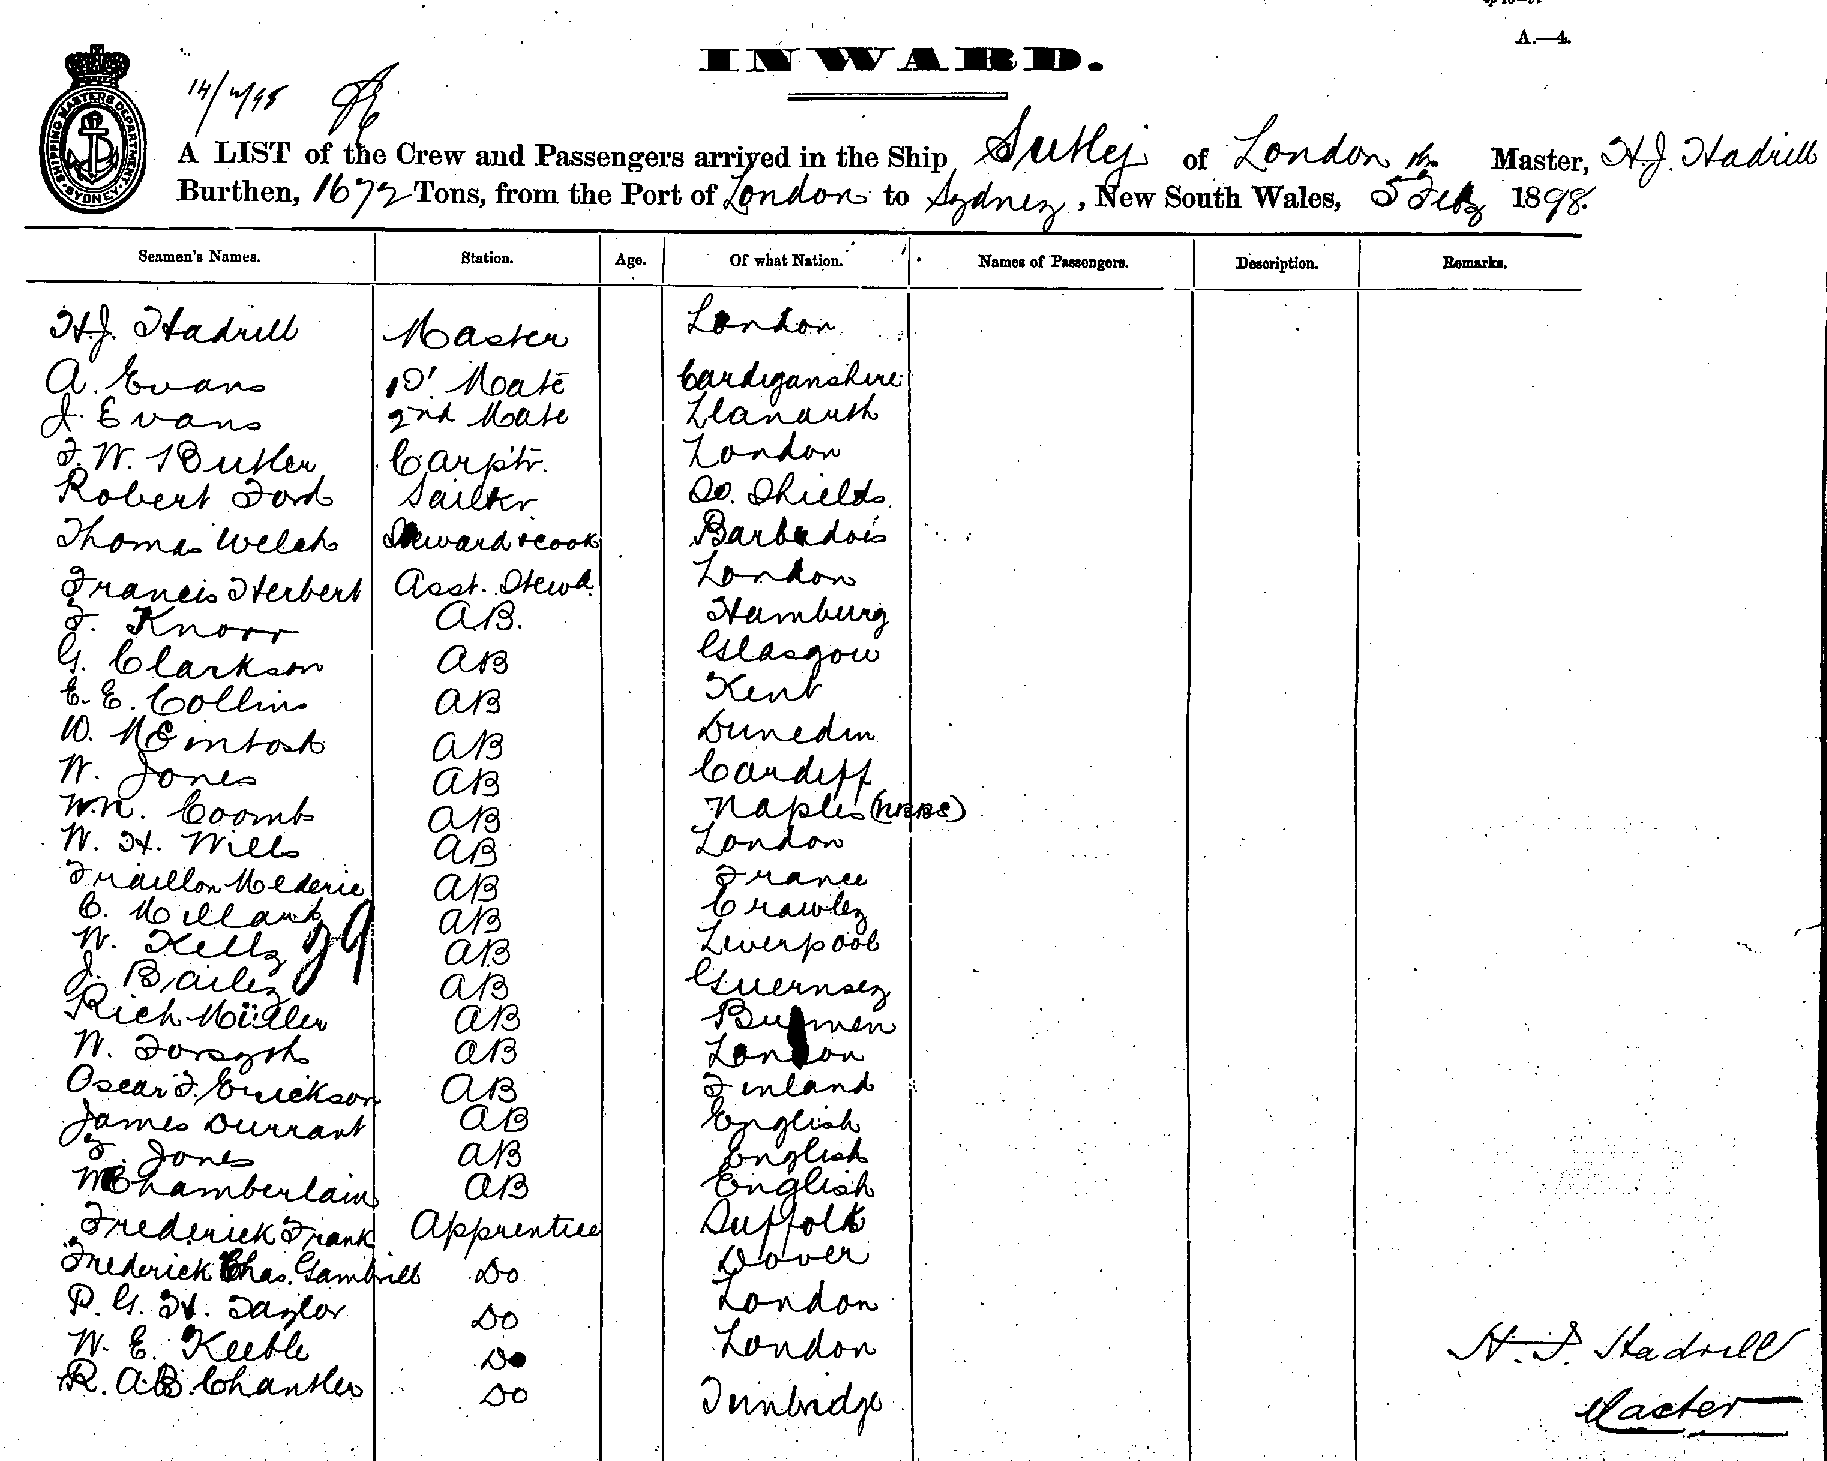 A.—4.
INWARD.
SHIPPING MASTERS DEPARTMENT SYDNEY
A LIST of the Crew and Passengers arrived in the Ship Sutlej of London Master, H.J. Hadrill
Burthen, 1672 Tons, from the Port of London to Sydney, New South Wales, 5 Feby 1898.
Seamen's Names. Station. Age. Of what Nation. Names of Passengers. Description. Remarks.
H.J. Hadrill Master London
A. Evans Mate Cardiganshire
J. Evans 2nd Mate Llanarth
F. W. Butler Carptr. London
Robert Ford Sailkr So. Shields.
Thomas Welch Steward & Cook Barbadois
Francis Herbert Asst. Stewd. London
F. Knorr AB. Hamburg
G. Clarkson AB Glasgow
E. E. Collins AB Kent
D. McIntosh AB Dunedin
W. Jones AB Cardiff
Coombs AB Naples
W. H. Wills AB London
Mederic AB France
C. Millard AB Crawley
W. Kelly AB Liverpool
29
J. Bailey AB Guernsey
Rich Müller AB
W. Forsyth AB London
Oscar F. Erickson AB Finland
James Durrant AB English
Jones AB English
Chamberlain AB English
Frederick Frank Apprentice Suffolk
Frederick Chas. Gambrill Do Dover
P. G. H. Taylor Do London
W. E. Keeble Do London
R. A.B. Chantler Do Tunbridge
H. J. Hadrill
Master